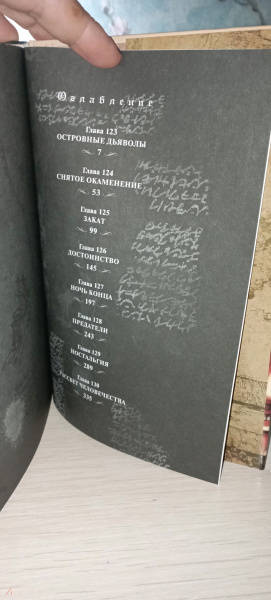 Оглавление
Глава 123
ОСТРОВНЫЕ ДЬЯВОЛЫ
7
Глава 124
СНЯТОЕ ОКАМЕНЕНИЕ
53
Глава 125
ЗАКАТ
99
Глава 126
ДОСТОИНСТВО
145
Глава 127
НОЧЬ КОНЦА
197
Глава 128
ПРЕДАТЕЛИ
243
Глава 129
НОСТАЛЬГИЯ
289
Глава 130
РАССВЕТ ЧЕЛОВЕЧЕСТВА
335